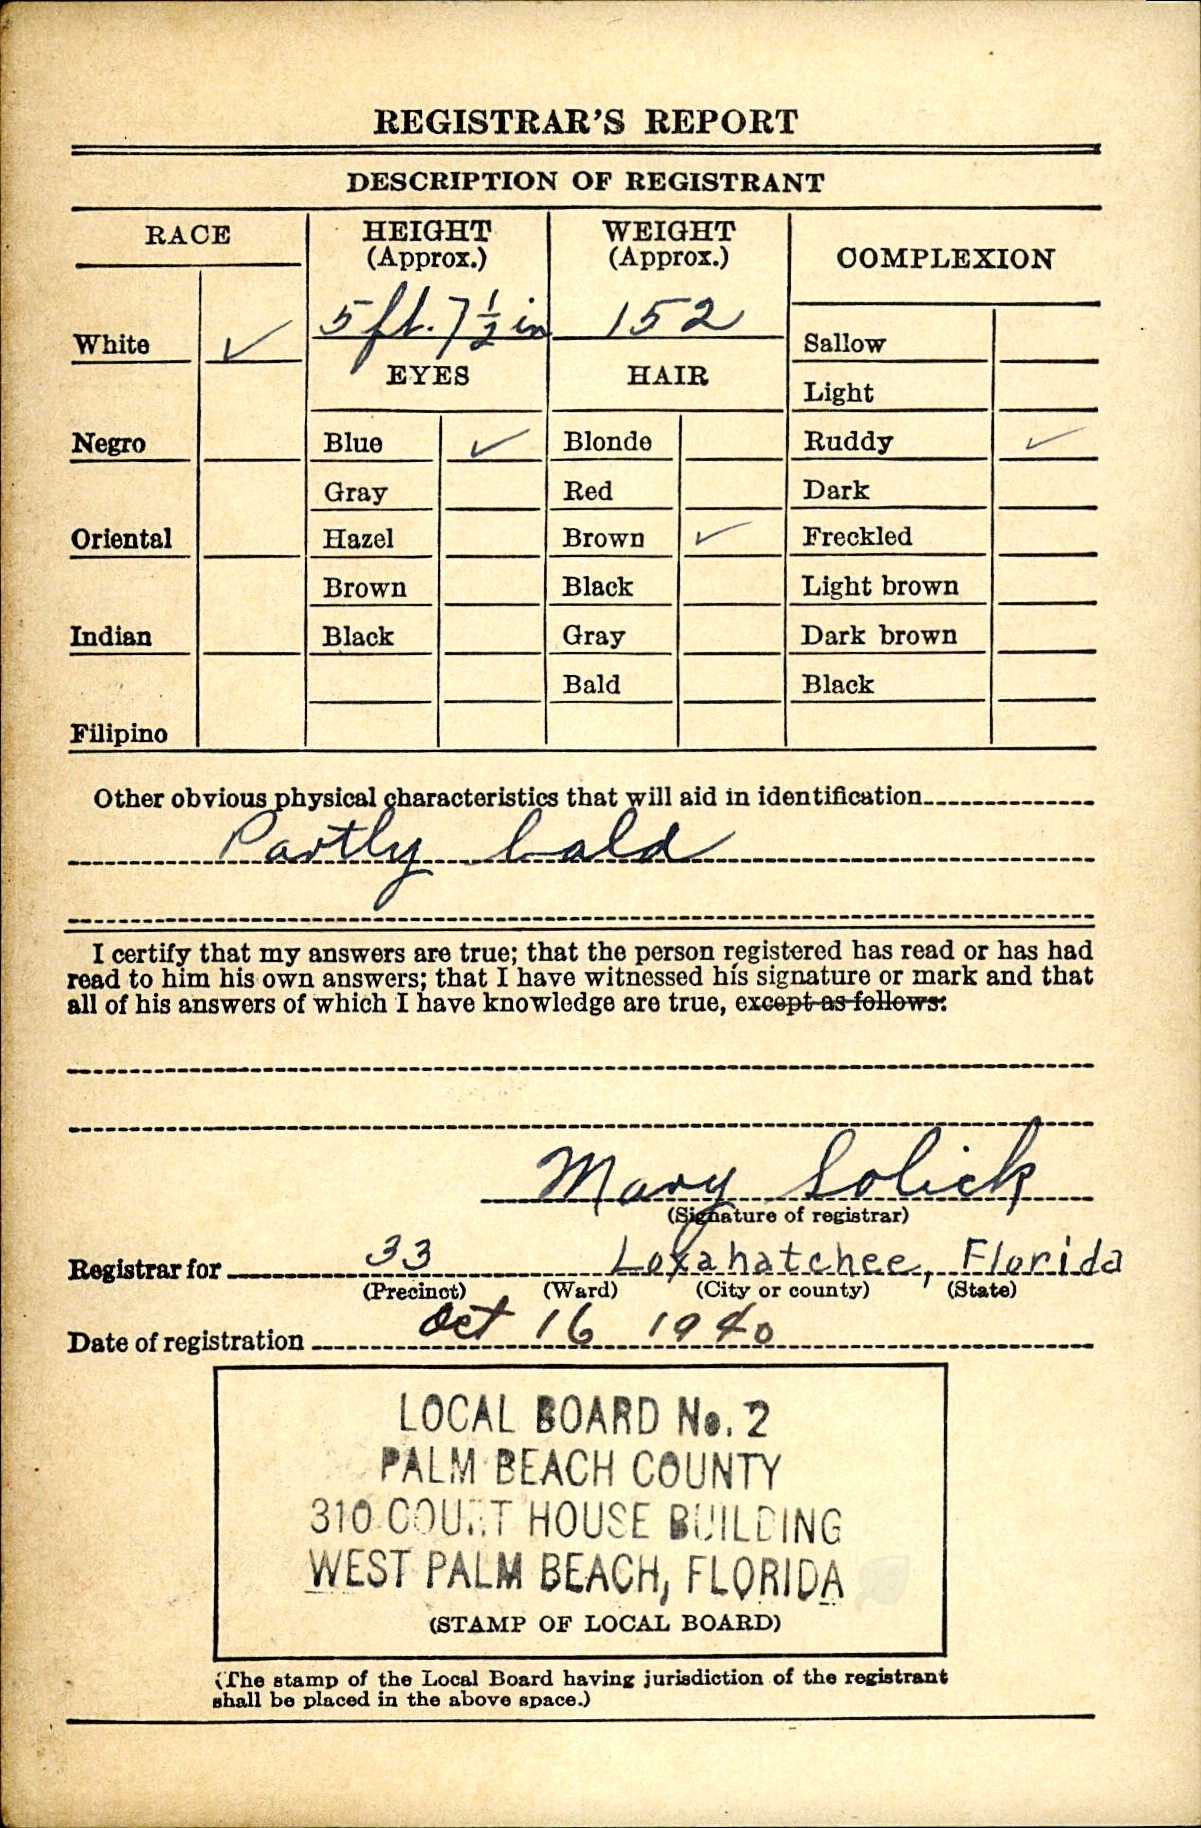 REGISTRAR'S REPORT
DESCRIPTION OF REGISTRANT
RACE
HEIGHT
(Approx.)
WEIGHT
(Approx.)
COMPLEXION
5 ft. 7 1/2 in
152
White ✓
EYES
HAIR
Sallow
Light
Negro
Blue ✓
Blonde
Ruddy ✓
Gray
Red
Dark
Oriental
Hazel
Brown ✓
Freckled
Brown
Black
Light brown
Indian
Black
Gray
Dark brown
Bald
Black
Filipino
Other obvious physical characteristics that will aid in identification
Partly bald
I certify that my answers are true; that the person registered has read or has had
read to him his own answers; that I have witnessed his signature or mark and that
all of his answers of which I have knowledge are true, except as follows:
Mary Solick
(Signature of registrar)
Registrar for 33 Loxahatchee, Florida
(Precinct) (Ward) (City or county) (State)
Date of registration Oct 16 1940
LOCAL BOARD No. 2
PALM BEACH COUNTY
310 COURT HOUSE BUILDING
WEST PALM BEACH, FLORIDA
(STAMP OF LOCAL BOARD)
(The stamp of the Local Board having jurisdiction of the registrant
shall be placed in the above space.)